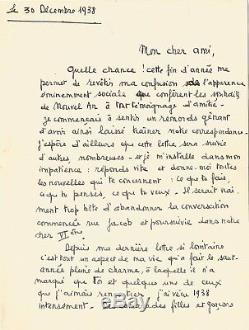 le 30 Décembre 1938
Mon cher ami,
Quelle chance ! cette fin d'année me
permet de revêtir ma confusion de l'apparence
éminemment sociale que confèrent les souhaits de
Nouvel An à tout témoignage d'amitié -
Je commençais à sentir un remords gênant
d'avoir ainsi laissé traîner notre correspondance.
J'espère d'ailleurs que cette lettre sera suivie
d'autres nombreuses - et je m'installe dans mon
impatience : réponds vite et donne-moi toutes
les nouvelles qui te concernent : ce que tu fais
ce que tu penses, ce que tu veux. Il serait vrai-
ment trop bête d'abandonner la conversation
commencée rue Jacob et poursuivie dans notre
cher VIème
Depuis ma dernière lettre si lointaine
c'est tout un aspect de ma vie qui a fait le saut -
année pleine de charme, à laquelle il n'a
manqué que toi et quelques uns de ceux
que j'aimais rencontrer. J'ai vécu 1938
intensément. Des filles et garçons